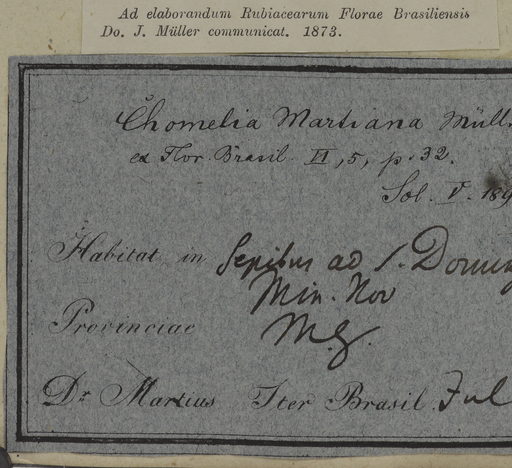 Ad elaborandum Rubiacearum Florae Brasiliensis
Do. J. Müller communicat. 1873.
Chomelia Martiana Müll.
ex Flor. Brasil. VI, 5, p. 32.
Sol. V. 189
Habitat in Sepibus ad S. Doming
Min. Nov
Provinciae M.g.
Dr Martius Iter Brasil. Jul